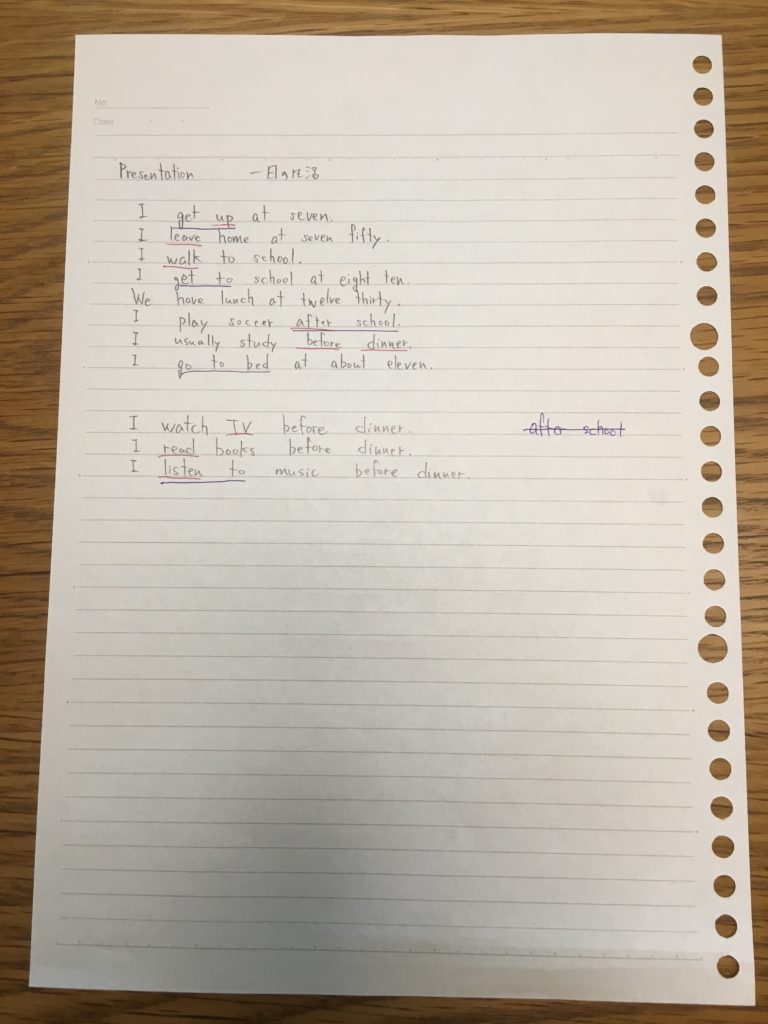 No.
Date
Presentation 一日の生活
I get up at seven.
I leave home at seven fifty.
I walk to school.
I get to school at eight ten.
We have lunch at twelve thirty.
I play soccer after school.
I usually study before dinner.
I go to bed at about eleven.
I watch TV before dinner. after school
I read books before dinner.
I listen to music before dinner.